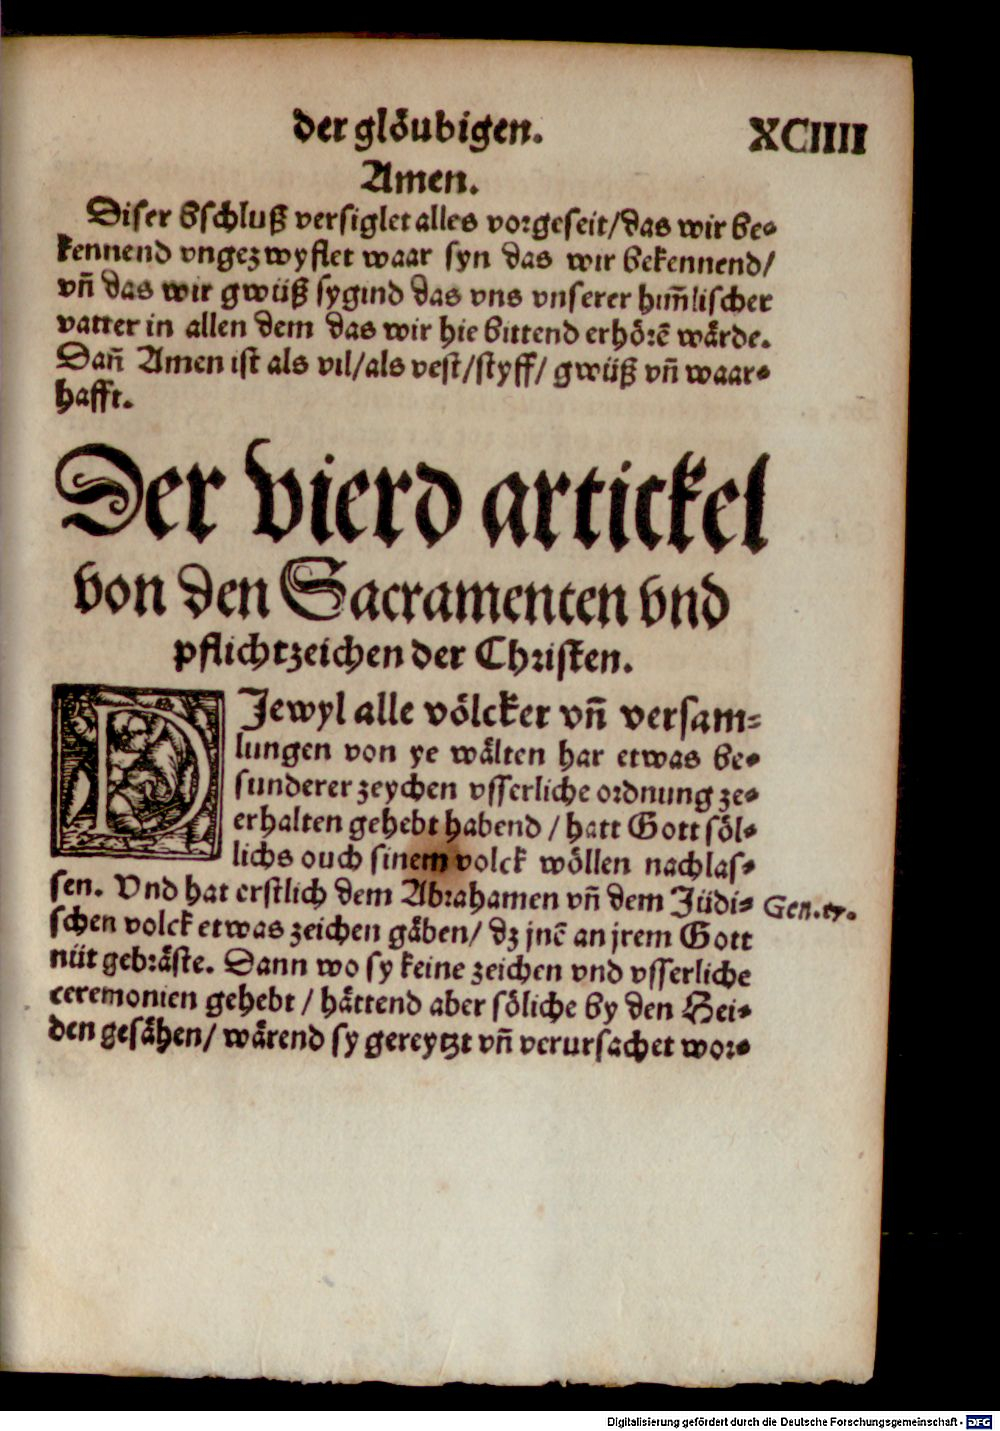 der glöubigen. XCIIII
Amen.
Diser bschluß versiglet alles vorgeseit/das wir be-
kennend vngezwyflet waar syn das wir bekennend/
vñ das wir gwüß sygind das vns vnserer him̃lischer
vatter in allen dem das wir hie bittend erhörē wärde.
Dañ Amen ist als vil/als vest/styff/ gwüß vñ waar-
hafft.
Der vierd artickel
von den Sacramenten vnd
pflichtzeichen der Christen.
DJewyl alle völcker vñ versam-
lungen von ye wälten har etwas be-
sunderer zeychen vsserliche ordnung ze-
erhalten gehebt habend / hatt Gott söl-
lichs ouch sinem volck wöllen nachlas-
sen. Vnd hat erstlich dem Abrahamen vñ dem Jüdi- Gen.
schen volck etwas zeichen gäben/ dz jnē an jrem Gott
nüt gebräste. Dann wo sy keine zeichen vnd vsserliche
ceremonien gehebt / hättend aber söliche by den Hei-
den gesähen/ wärend sy gereytzt vñ verursachet wor-
Digitalisierung gefördert durch die Deutsche Forschungsgemeinschaft - DFG